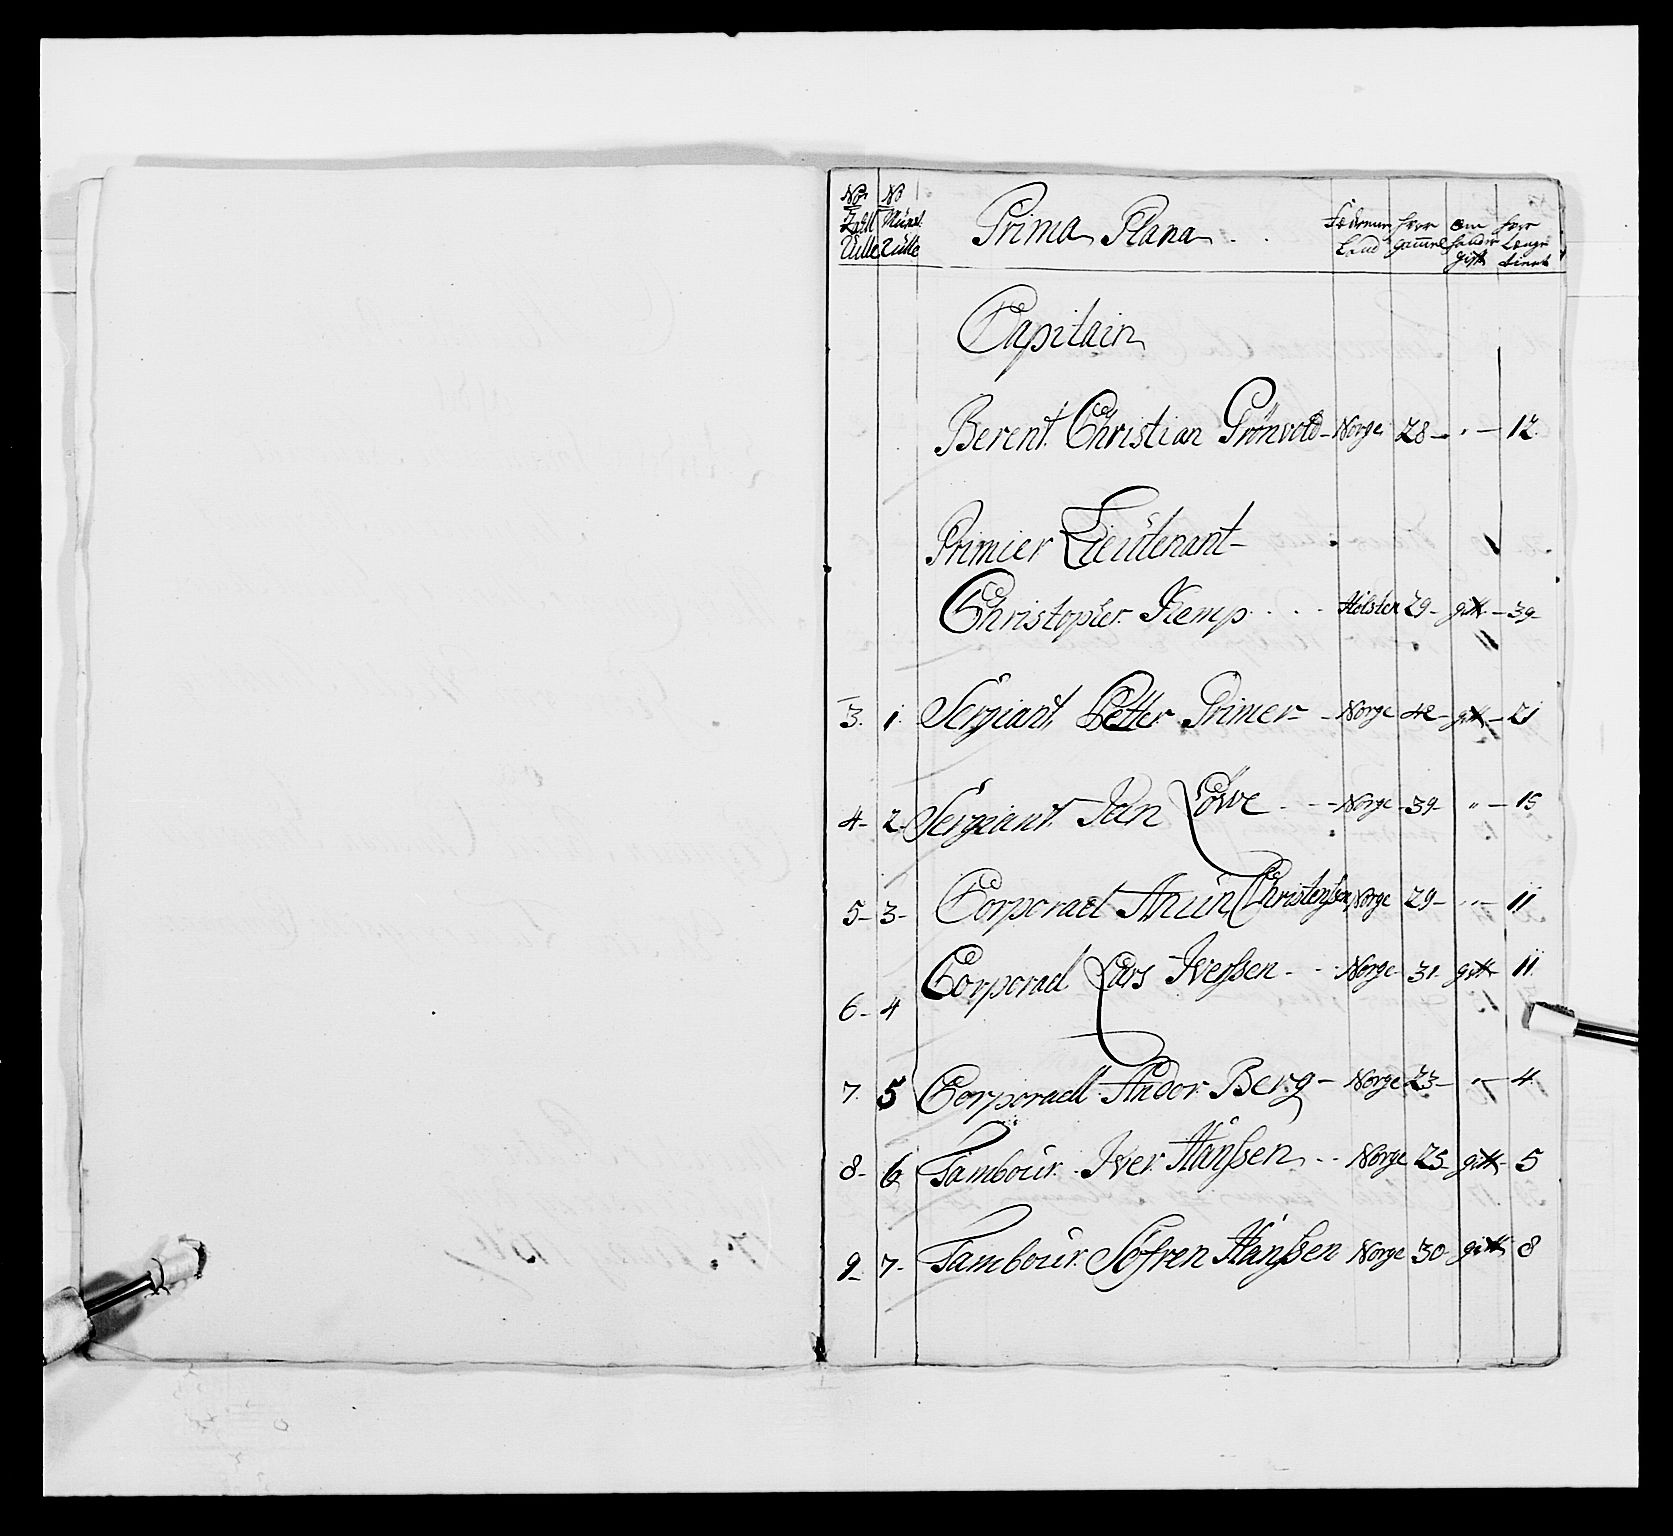 No No Prima Plana Føderne huor om huor
Land gammel gift Lenge tient
Capitain
Berent Christian Grønvold - Norge 28 - " - 12
Primier Lieütenant -
Christopher Kemp Holsten 29 - gift - 39
3. 1. Sergiant Petter Primer - Norge 42 - gift - 21
4 - 2 - Sergiant Jan Løwe - Norge - 39 - " - 15
5 - 3 - Corporael Anün Christenssen Norge 29 - " - 11
6 - 4 Corporael Lars Iverssen - Norge 31 - gift 11
7. 5 Corporaell Andor Berg - Norge 23 - " - 4
8 - 6 Tambour Iver Hanssen - Norge 25 gift - 5
9 - 7 - Tambour Søfren Hanssen Norge 30 gift 8